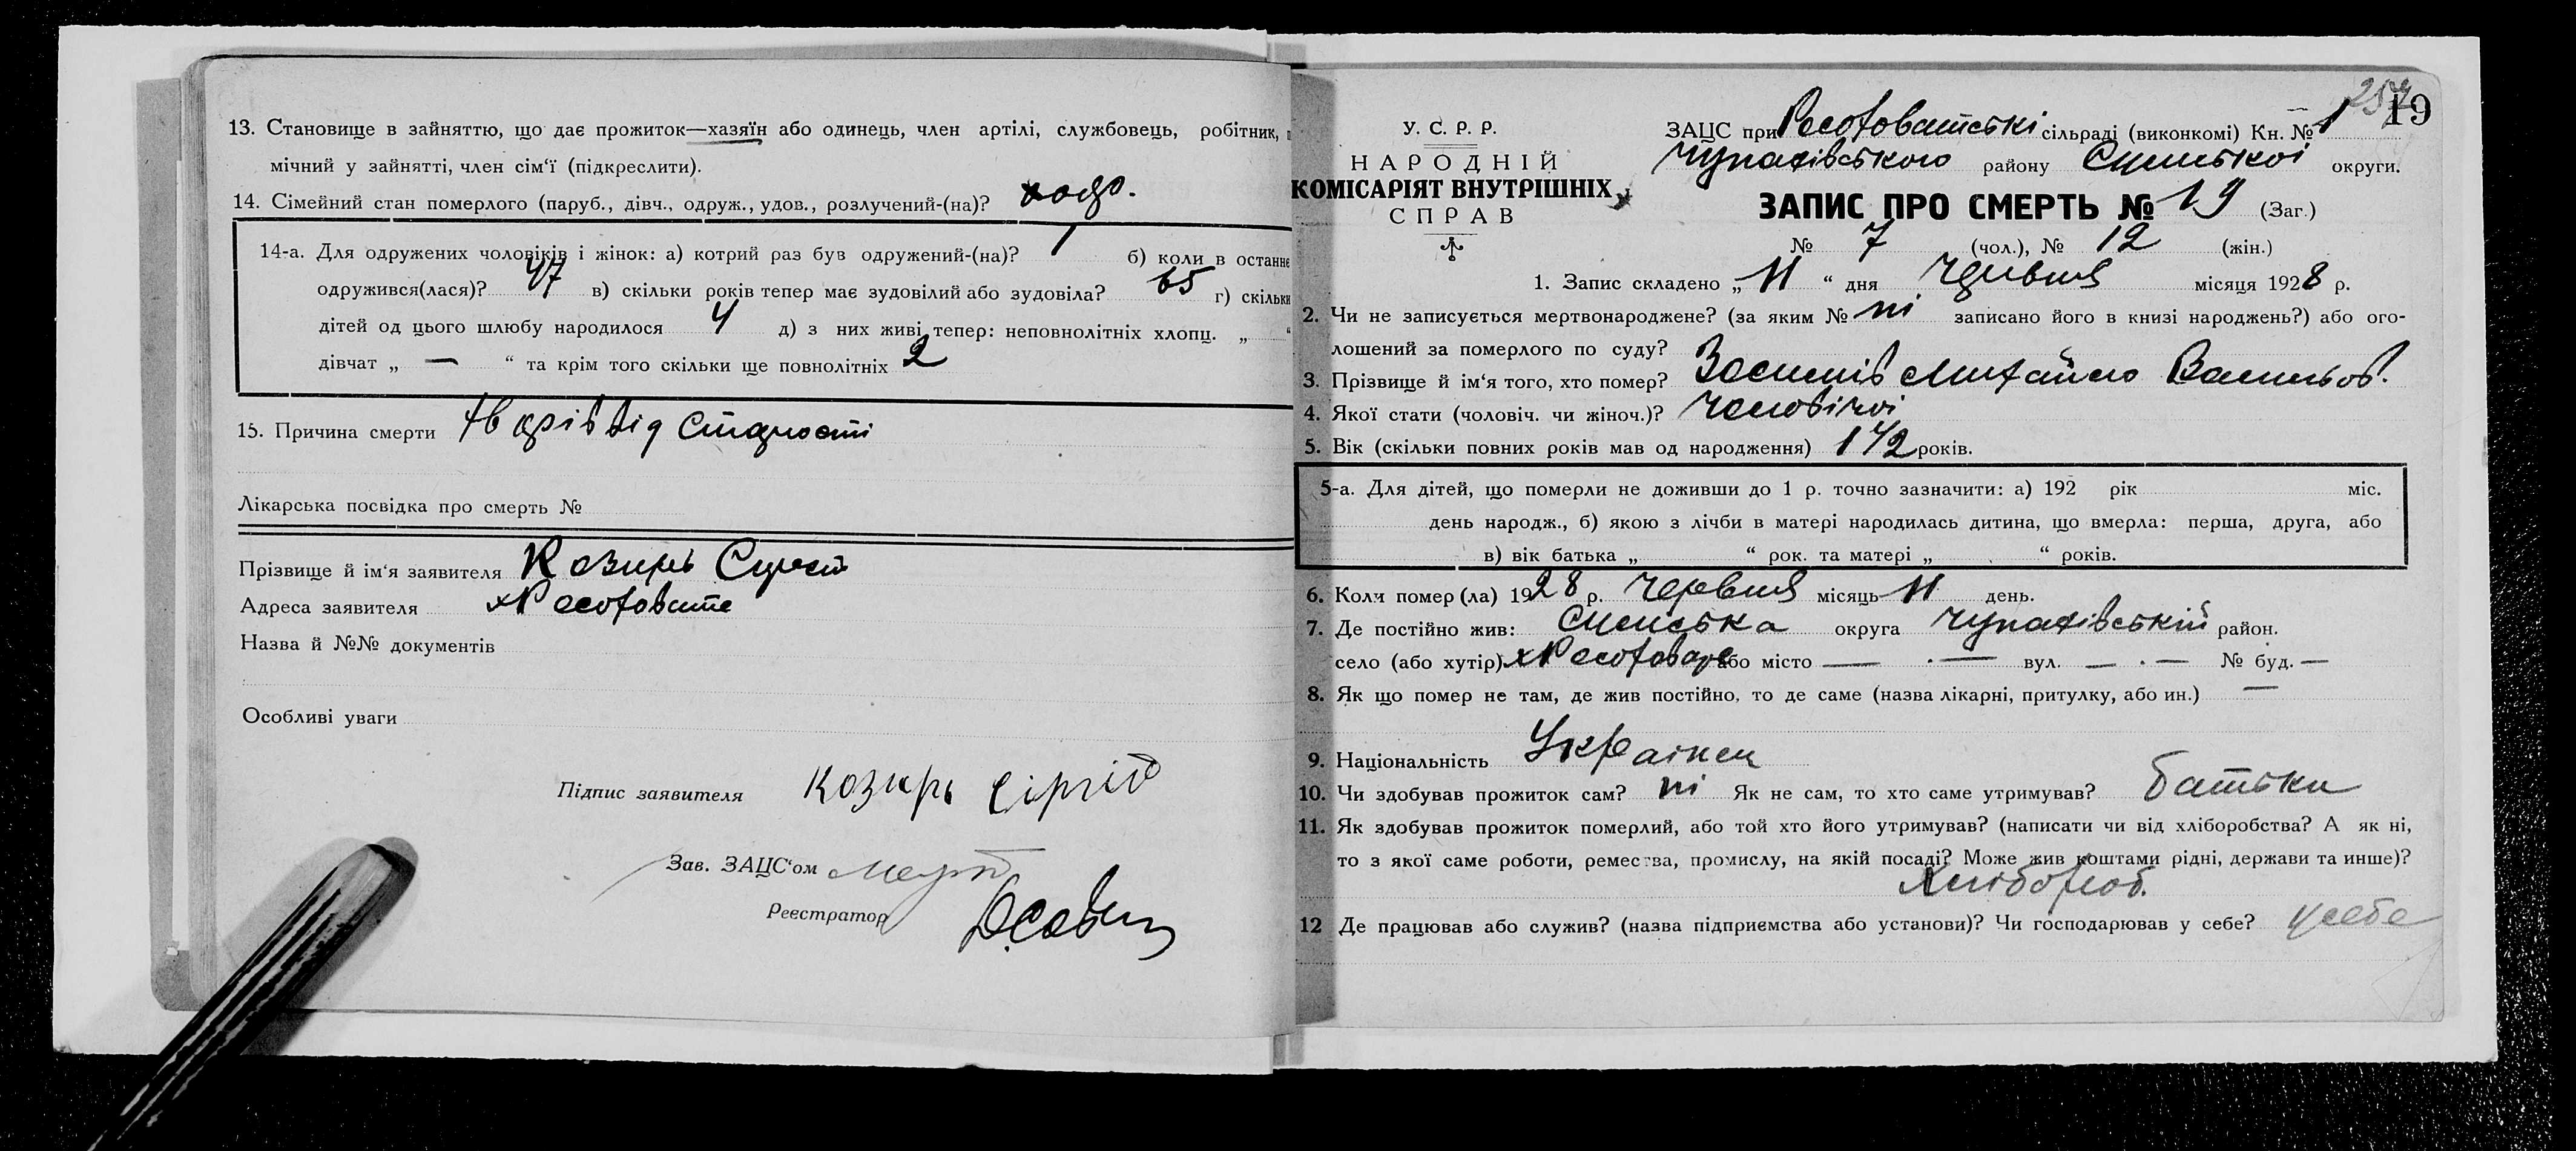 13. Становище в зайняттю, що дає прожиток—хазяїн або одинець, член артілі, службовець, робітник,
мічний у зайнятті, член сім‘ї (підкреслити).
14. Сімейний стан померлого (паруб., дівч., одруж., удов., розлучений-(на)?
14-а. Для одружених чоловіків і жінок: а) котрий раз був одружений-(на)? 1 б) коли в останнє
одружився(лася)? 47 в) скільки років тепер має зудовілий або зудовіла? 65 г) скільки
дітей од цього шлюбу народилося 4 д) з них живі тепер: неповнолітніх хлопц. „ “
дівчат „ — “ та крім того скільки ще повнолітніх 2
15. Причина смерти від старості
Лікарська посвідка про смерть №
Прізвище й ім‘я заявителя Козирь
Адреса заявителя
Назва й №№ документів
Особливі уваги
Підпис заявителя Козирь Сіргій
Зав. ЗАЦС‘ом
Реєстратор
257 19
У. С. Р. Р.
НАРОДНІЙ
КОМІСАРІЯТ ВНУТРІШНІХ
СПРАВ
ЗАЦС при сільраді (виконкомі) Кн. № 1
Чупахівського району Сумської округи.
ЗАПИС ПРО СМЕРТЬ № 19 (Заг.)
№ 7 (чол.), № 12 (жін.)
1. Запис складено „ 11 “ дня Червня місяця 1928 р.
2. Чи не записується мертвонароджене? (за яким № ні записано його в книзі народжень?) або ого-
лошений за померлого по суду?
3. Прізвище й ім‘я того, хто помер? Михайло Васильов.
4. Якої стати (чоловіч. чи жіноч.)? Чоловічої
5. Вік (скільки повних років мав од народження) 1 1/2 років.
5-а. Для дітей, що померли не доживши до 1 р. точно зазначити: а) 192 рік міс.
день народж., б) якою з лічби в матері народилась дитина, що вмерла: перша, друга, або
в) вік батька „ “ рок. та матері „ “ років.
6. Коли помер(ла) 1928 р. Червня місяць 11 день.
7. Де постійно жив: Сумська округа Чупахівській район.
село (або хутір) або місто — · — вул. — · — № буд. —
8. Як що помер не там, де жив постійно, то де саме (назва лікарні, притулку, або ин.) —
9. Національність Українец
10. Чи здобував прожиток сам? ні Як не сам, то хто саме утримував? батьки
11. Як здобував прожиток померлий, або той хто його утримував? (написати чи від хліборобства? А як ні,
то з якої саме роботи, ремества, промислу, на якій посаді? Може жив коштами рідні, держави та инше)?
Хлібороб.
12 Де працював або служив? (назва підприємства або установи)? Чи господарював у себе? у себе